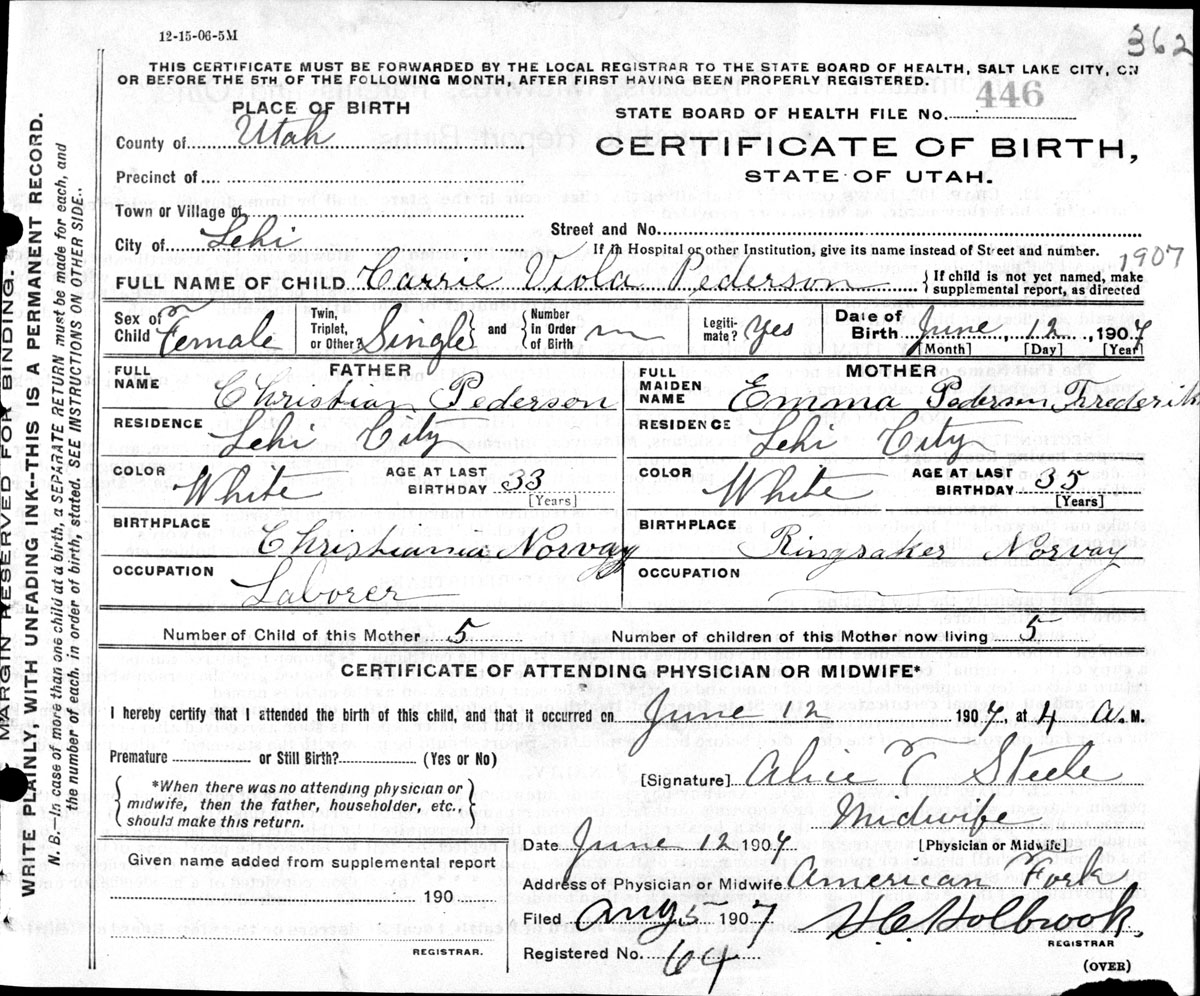 362
12-15-06-5M
THIS CERTIFICATE MUST BE FORWARDED BY THE LOCAL REGISTRAR TO THE STATE BOARD OF HEALTH, SALT LAKE CITY, ON
OR BEFORE THE 5TH OF THE FOLLOWING MONTH, AFTER FIRST HAVING BEEN PROPERLY REGISTERED.
PLACE OF BIRTH
STATE BOARD OF HEALTH FILE NO. 446
County of Utah
CERTIFICATE OF BIRTH,
STATE OF UTAH.
Precinct of
Town or Village of
Street and No.
City of Lehi
If in Hospital or other Institution, give its name instead of Street and number.
1907
FULL NAME OF CHILD Carrie Viola Pederson
{If child is not yet named, make
supplemental report, as directed
Sex of Child Female
Twin, Triplet, or Other? Single and Number In Order of Birth
Legiti-mate? Yes
Date of Birth June, 12, 1907
[Month] [Day] [Year]
FATHER
FULL NAME Christian Pederson
RESIDENCE Lehi City
COLOR White AGE AT LAST BIRTHDAY 33
[Years]
BIRTHPLACE Christiania Norvay
OCCUPATION Laborer
MOTHER
FULL MAIDEN NAME Emma Pederson Frederik
RESIDENCE Lehi City
COLOR White AGE AT LAST BIRTHDAY 35
[Years]
BIRTHPLACE Ringsaker Norvay
OCCUPATION
Number of Child of this Mother 5 Number of children of this Mother now living 5
CERTIFICATE OF ATTENDING PHYSICIAN OR MIDWIFE*
I hereby certify that I attended the birth of this child, and that it occurred on June 12 1907, at 4 A. M.
Premature or Still Birth? (Yes or No)
{*When there was no attending physician or
midwife, then the father, householder, etc.,
should make this return.}
[Signature] Alice T Steele
Midwife
[Physician or Midwife]
Date June 12 1907
Given name added from supplemental report
190
REGISTRAR.
Address of Physician or Midwife American Fork
Filed Aug 5 1907 H. C. Holbrook.
REGISTRAR
Registered No. 64
(OVER)
MARGIN RESERVED FOR BINDING.
WRITE PLAINLY, WITH UNFADING INK--THIS IS A PERMANENT RECORD.
N. B.—In case of more than one child at a birth, a SEPARATE RETURN must be made for each, and
the number of each, in order of birth, stated. SEE INSTRUCTIONS ON OTHER SIDE..